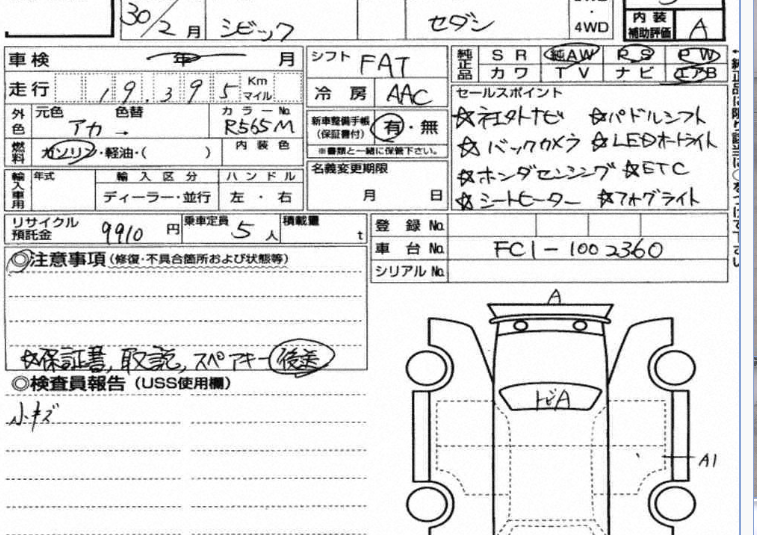 30/2月 シビック セダン 4WD 内装補助評価 A
車検 年 月 シフト FAT 純正品 SR 純AW PS PW
カワ TV ナビ エアB
走行 19,395 Km マイル 冷房 AAC セールスポイント
外色 元色 色替 カラーNo.
アカ → R565M
新車整備手帳(保証書付) 有・無
※書類と一緒に保管下さい。
☆社外ナビ ☆パドルシフト
☆バックカメラ ☆LEDオートライト
☆ホンダセンシング ☆ETC
☆シートヒーター ☆フォグライト
燃料 ガソリン・軽油・( ) 内装色
名義変更期限
月 日
輸入車用 年式 輸入区分 ハンドル
ディーラー・並行 左・右
リサイクル預託金 9910円 乗車定員 5人 積載量 t
登録No.
車台No. FC1-1002360
シリアルNo.
◎注意事項(修復・不具合箇所および状態等)
☆保証書,取説,スペアキー後送
◎検査員報告(USS使用欄)
小キズ
A
トビA
A1